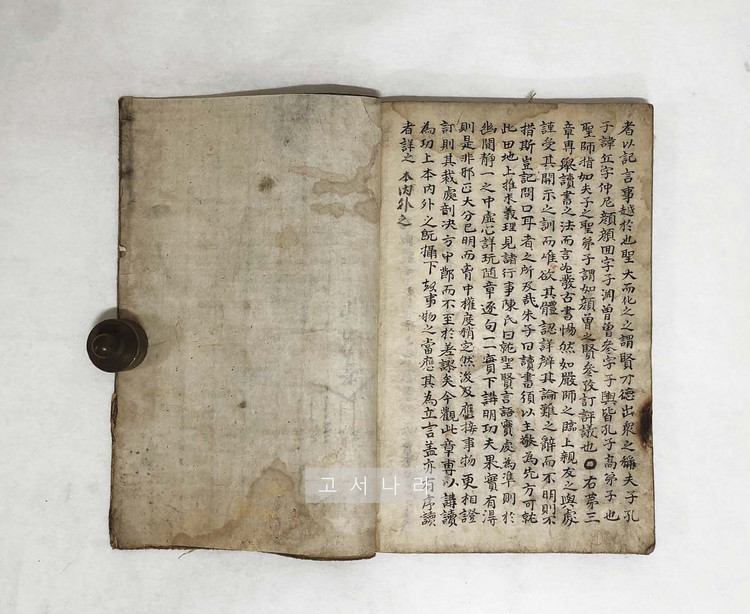 者以記言事越於也聖大而化之之謂賢才德出衆之稱夫子孔
子諱丘字仲尼顔顔回字子淵曾曾參字子輿皆孔子高弟子也
聖師指如夫子之聖弟子謂如顔曾之賢參攷訂評議也○右第三
章專舉讀書之法而言始發古書惕然如嚴師之臨上親友之與處
謹受其開示之訓而唯欲其體認詳辨其論難之辭而不明則不
措斯豈記問口耳者之所及哉朱子曰讀書須以主敬為先方可就
此田地上推求義理見諸行事陳氏曰就聖賢言語實處為準則於
幽閒靜一之中虛心詳玩隨章逐句一一實下講明功夫果實有得
則是非邪正大分已明而胷中權度稍定然後及應接事物更相證
訂則其裁處剖決方中節而不至於差謬矣今觀此章專以講讀
為功上本内外之既攝下致事物之當應其為立言盖亦序讀
者詳之 本内外之
고서나라